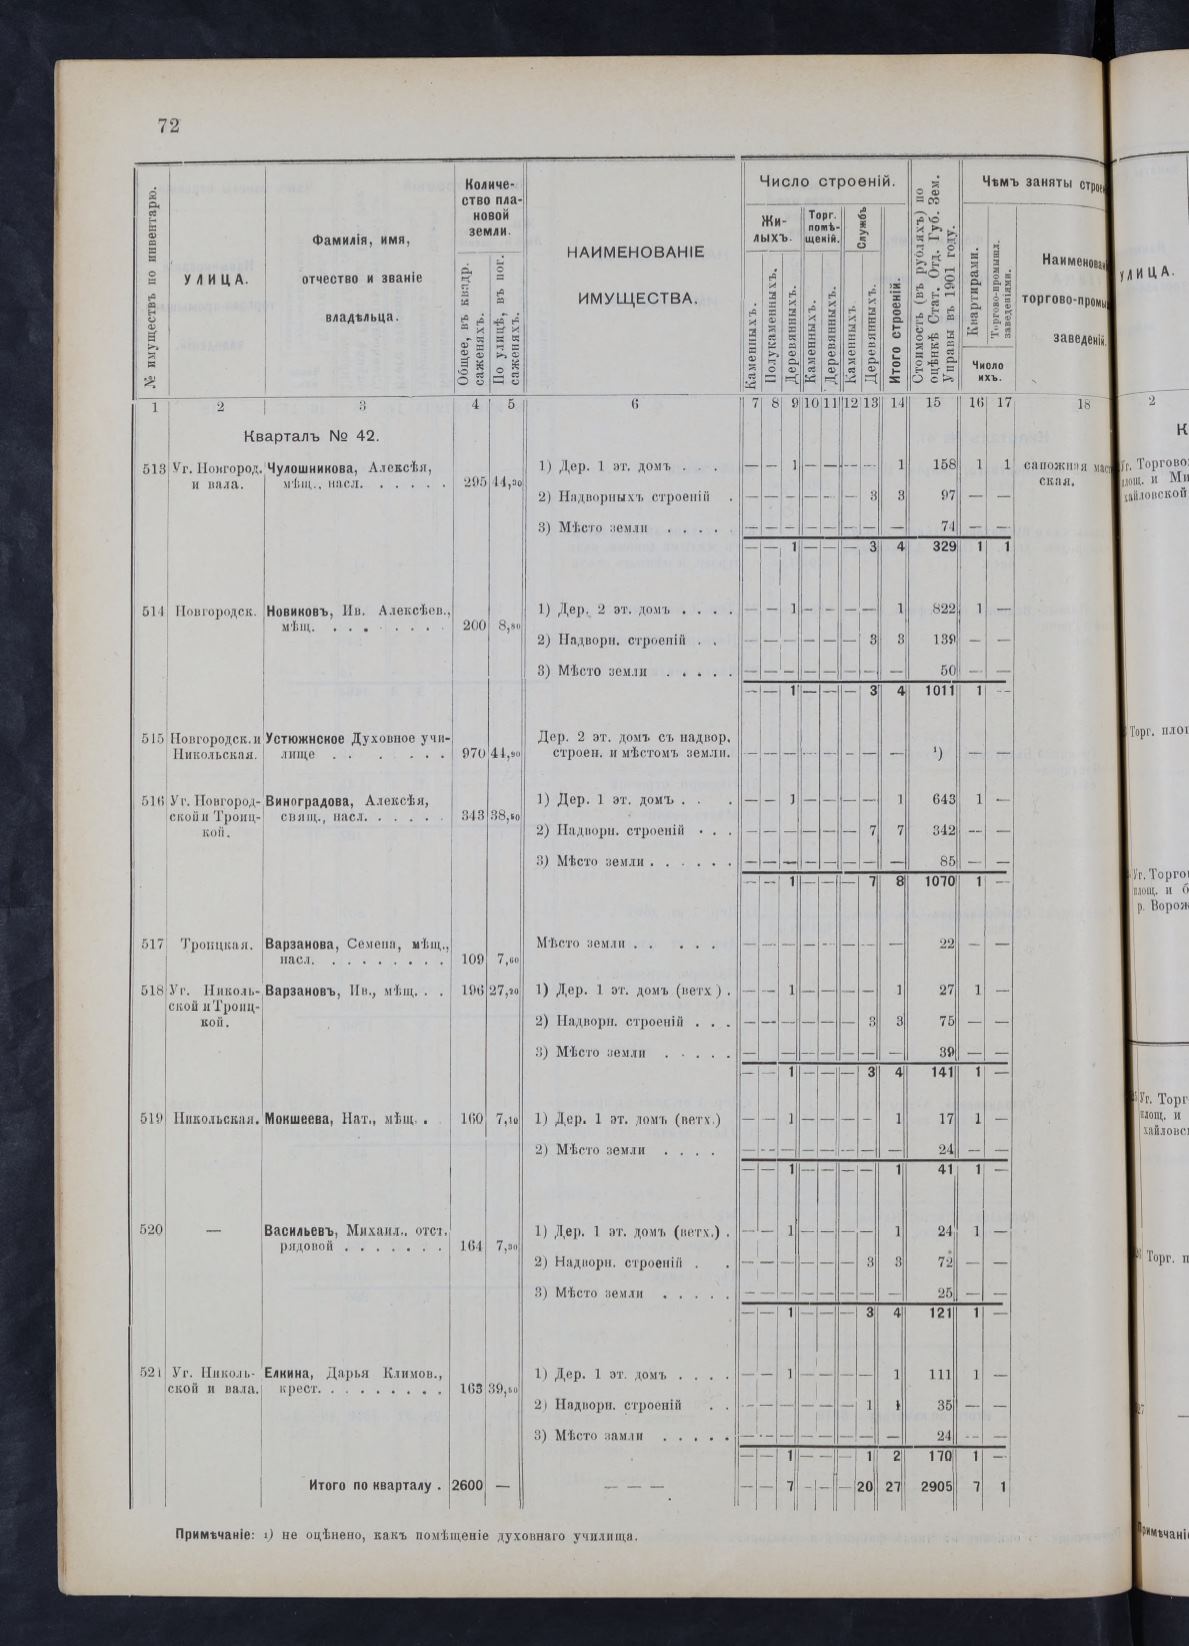 72
№ имуществъ по инвентарю.
УЛИЦА.
Фамилія, имя,
отчество и званіе
владѣльца.
Количе-
ство пла-
новой
земли.
Общее, въ квадр.
саженяхъ.
По улицѣ, въ пог.
саженяхъ.
НАИМЕНОВАНІЕ
ИМУЩЕСТВА.
Число строеній.
Жи-
лыхъ.
Торг.
помѣ-
щеній.
Службъ
Каменныхъ.
Полукаменныхъ.
Деревянныхъ.
Каменныхъ.
Деревянныхъ.
Каменныхъ.
Деревянныхъ.
Итого строеній.
Стоимость (въ рубляхъ) по
оцѣнкѣ Стат. Отд. Губ. Зем.
Управы въ 1901 году.
Чѣмъ заняты строе
Квартирами.
Торгово-промышл.
заведеніями.
Число
ихъ.
Наименован
торгово-промы
заведеній.
1 2 3 4 5 6 7 8 9 10 11 12 13 14 15 16 17 18
Кварталъ № 42.
513 Уг. Новгород. Чулошникова, Алексѣя, 1) Дер. 1 эт. домъ . . . — — 1 — — — — 1 158 1 1 сапожная маст
и вала. мѣщ., насл. . . . . . 295 44,30 ская.
2) Надворныхъ строеній . — — — — — — 3 3 97 — —
3) Мѣсто земли . . . . . — — — — — — — — 74 — —
— — 1 — — — 3 4 329 1 1
514 Новгородск. Новиковъ, Ив. Алексѣев., 1) Дер. 2 эт. домъ . . . . — — 1 — — — — 1 822 1 —
мѣщ. . . . . . . . 200 8,80
2) Надворн. строеній . . — — — — — — 3 3 139 — —
3) Мѣсто земли . . . . . — — — — — — — — 50 — —
— — 1 — — — 3 4 1011 1 —
515 Новгородск. и Устюжнское Духовное учи- Дер. 2 эт. домъ съ надвор.
Никольская. лище . . . . . . . 970 44,90 строен. и мѣстомъ земли. — — — — — — — — ¹) — —
516 Уг. Новгород- Виноградова, Алексѣя, 1) Дер. 1 эт. домъ . . . — — 1 — — — — 1 643 1 —
ской и Троиц- свящ., насл. . . . . . 343 38,50
кой. 2) Надворн. строеній . . . — — — — — — 7 7 342 — —
3) Мѣсто земли . . . . . . — — — — — — — — 85 — —
— — 1 — — — 7 8 1070 1 —
517 Троицкая. Варзанова, Семена, мѣщ., Мѣсто земли . . . . . — — — — — — — — 22 — —
насл. . . . . . . . . 109 7,60
518 Уг. Николь- Варзановъ, Ив., мѣщ. . . 196 27,20 1) Дер. 1 эт. домъ (ветх) . — — 1 — — — — 1 27 1 —
ской и Троиц-
кой. 2) Надворн. строеній . . . — — — — — — 3 3 75 — —
3) Мѣсто земли . . . . . — — — — — — — — 39 — —
— — 1 — — — 3 4 141 1 —
519 Никольская. Мокшеева, Нат., мѣщ. . 160 7,10 1) Дер. 1 эт. домъ (ветх.) — — 1 — — — — 1 17 1 —
2) Мѣсто земли . . . . — — — — — — — — 24 — —
— — 1 — — — — 1 41 1 —
520 — Васильевъ, Михаил., отст. 1) Дер. 1 эт. домъ (ветх.) . — — 1 — — — — 1 24 1 —
рядовой . . . . . . . 164 7,30
2) Надворн. строеній . . — — — — — — 3 3 72 — —
3) Мѣсто земли . . . . . — — — — — — — — 25 — —
— — 1 — — — 3 4 121 1 —
521 Уг. Николь- Елкина, Дарья Климов., 1) Дер. 1 эт. домъ . . . . — — 1 — — — — 1 111 1 —
ской и вала. крест. . . . . . . . . 163 39,50
2) Надворн. строеній . . — — — — — — 1 1 35 — —
3) Мѣсто замли . . . . . — — — — — — — — 24 — —
— — 1 — — — 1 2 170 1 —
Итого по кварталу . 2600 — — — — — — 7 — — — 20 27 2905 7 1
Примѣчаніе: 1) не оцѣнено, какъ помѣщеніе духовнаго училища.
УЛИЦА.
2
К
Уг. Торгово
площ. и Ми
хайловской
Торг. площ
Уг. Торго
площ. и б
р. Ворож
Уг. Торг
площ. и
хайловс
Торг. п
27 —
Примѣчані